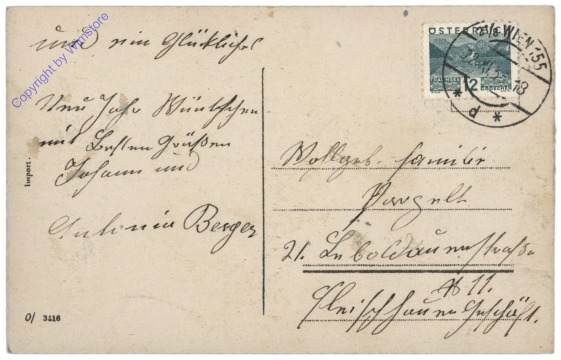 und ein Glückliches
Neu Jahr Wünschen
mit Besten Grüßen
Johann und
Antonia Berger
Import.
O/ 3416
Copyright by WmStore
ÖSTERREICH
12
WIEN 155
Wohlgeb. Familie
21. Leopoldauerstraße
№ 11.
Fleischhauer Geschäft.